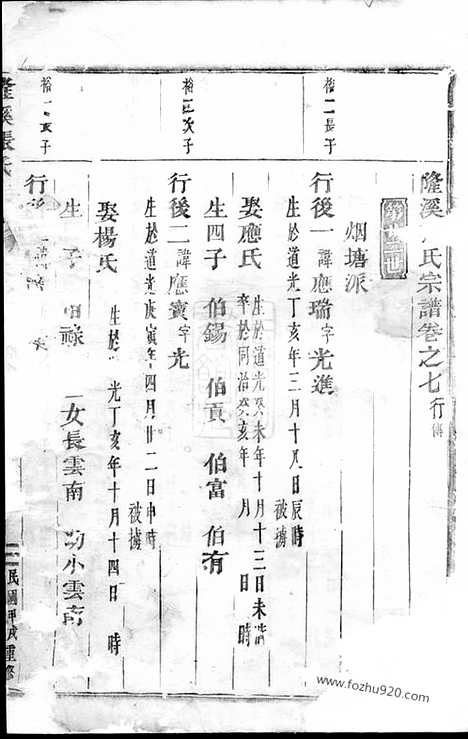 隆溪 氏宗譜卷之七行傳
烟塘派
裕二長子
行後一諱應瑞字光進
生於道光丁亥年三月十九日辰時
被擄
娶應氏
生於道光癸未年十月十三日未時
卒於同治癸亥年 月 日 時
生四子 伯錫 伯貢 伯富 伯有
裕三次子
行後二諱應賓字光
生於道光庚寅年四月廿二日申時
被擄
娶楊氏
生於 光丁亥年十月十四日 時
生 子 祿 女長雲南 小雲南
行後
隆溪張氏
民國甲戌重修
www.fozhu920.com